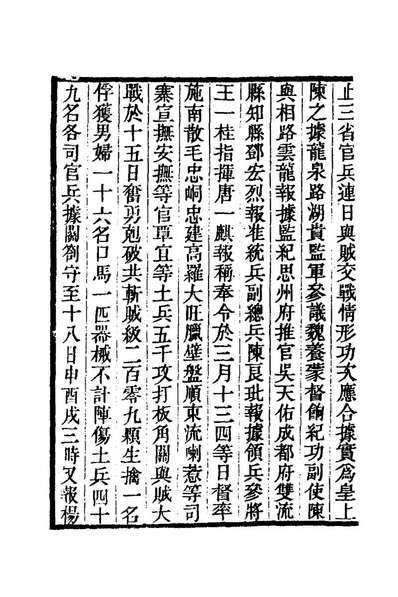 止三省官兵連日與賊交戰情形功次應合據實爲皇上
陳之據龍泉路湖貴監軍參議魏養蒙督餉紀功副使陳
與相路雲龍報據監紀思州府推官吳天佑成都府雙流
縣知縣鄧宏烈報准統兵副總兵陳良玭報據領兵參將
王一桂指揮唐一麒報稱奉令於三月十三四等日督率
施南散毛忠峒忠建高羅大旺臘壁盤順東流喇惹等司
寨宣撫安撫等官覃宜等土兵五千攻打板角關與賊大
戰於十五日奮勇剋破共斬賊級二百零九顆生擒一名
俘獲男婦一十六名口馬一匹器械不計陣傷土兵四十
九名各司官兵據關劄守至十八日申酉戌三時又報楊